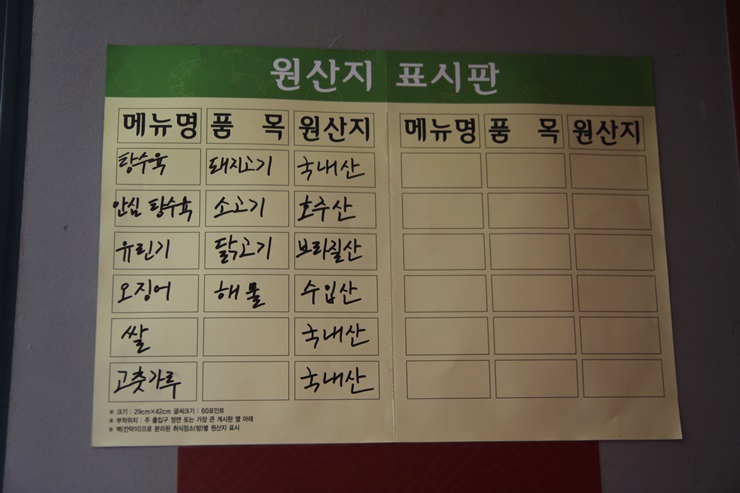 원산지 표시판
메뉴명 품 목 원산지 메뉴명 품 목 원산지
탕수육 돼지고기 국내산
안심 탕수육 소고기 호주산
유린기 닭고기 브라질산
오징어 해물 수입산
쌀 국내산
고춧가루 국내산
※ 크기 : 29cm×42cm 글씨크기 : 60포인트
※ 부착위치 : 주 출입구 정면 또는 가장 큰 게시판 옆 아래
※ 벽(칸막이)으로 분리된 취식장소(방)별 원산지 표시